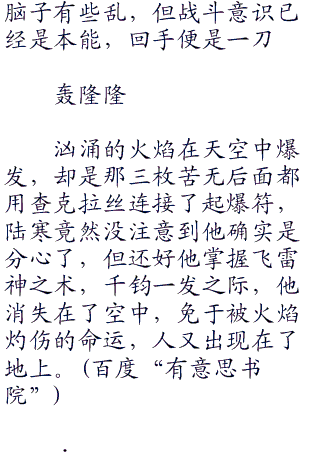 脑子有些乱，但战斗意识已
经是本能，回手便是一刀
轰隆隆
汹涌的火焰在天空中爆
发，却是那三枚苦无后面都
用查克拉丝连接了起爆符，
陆寒竟然没注意到他确实是
分心了，但还好他掌握飞雷
神之术，千钧一发之际，他
消失在了空中，免于被火焰
灼伤的命运，人又出现在了
地上。(百度“有意思书
院”)
.